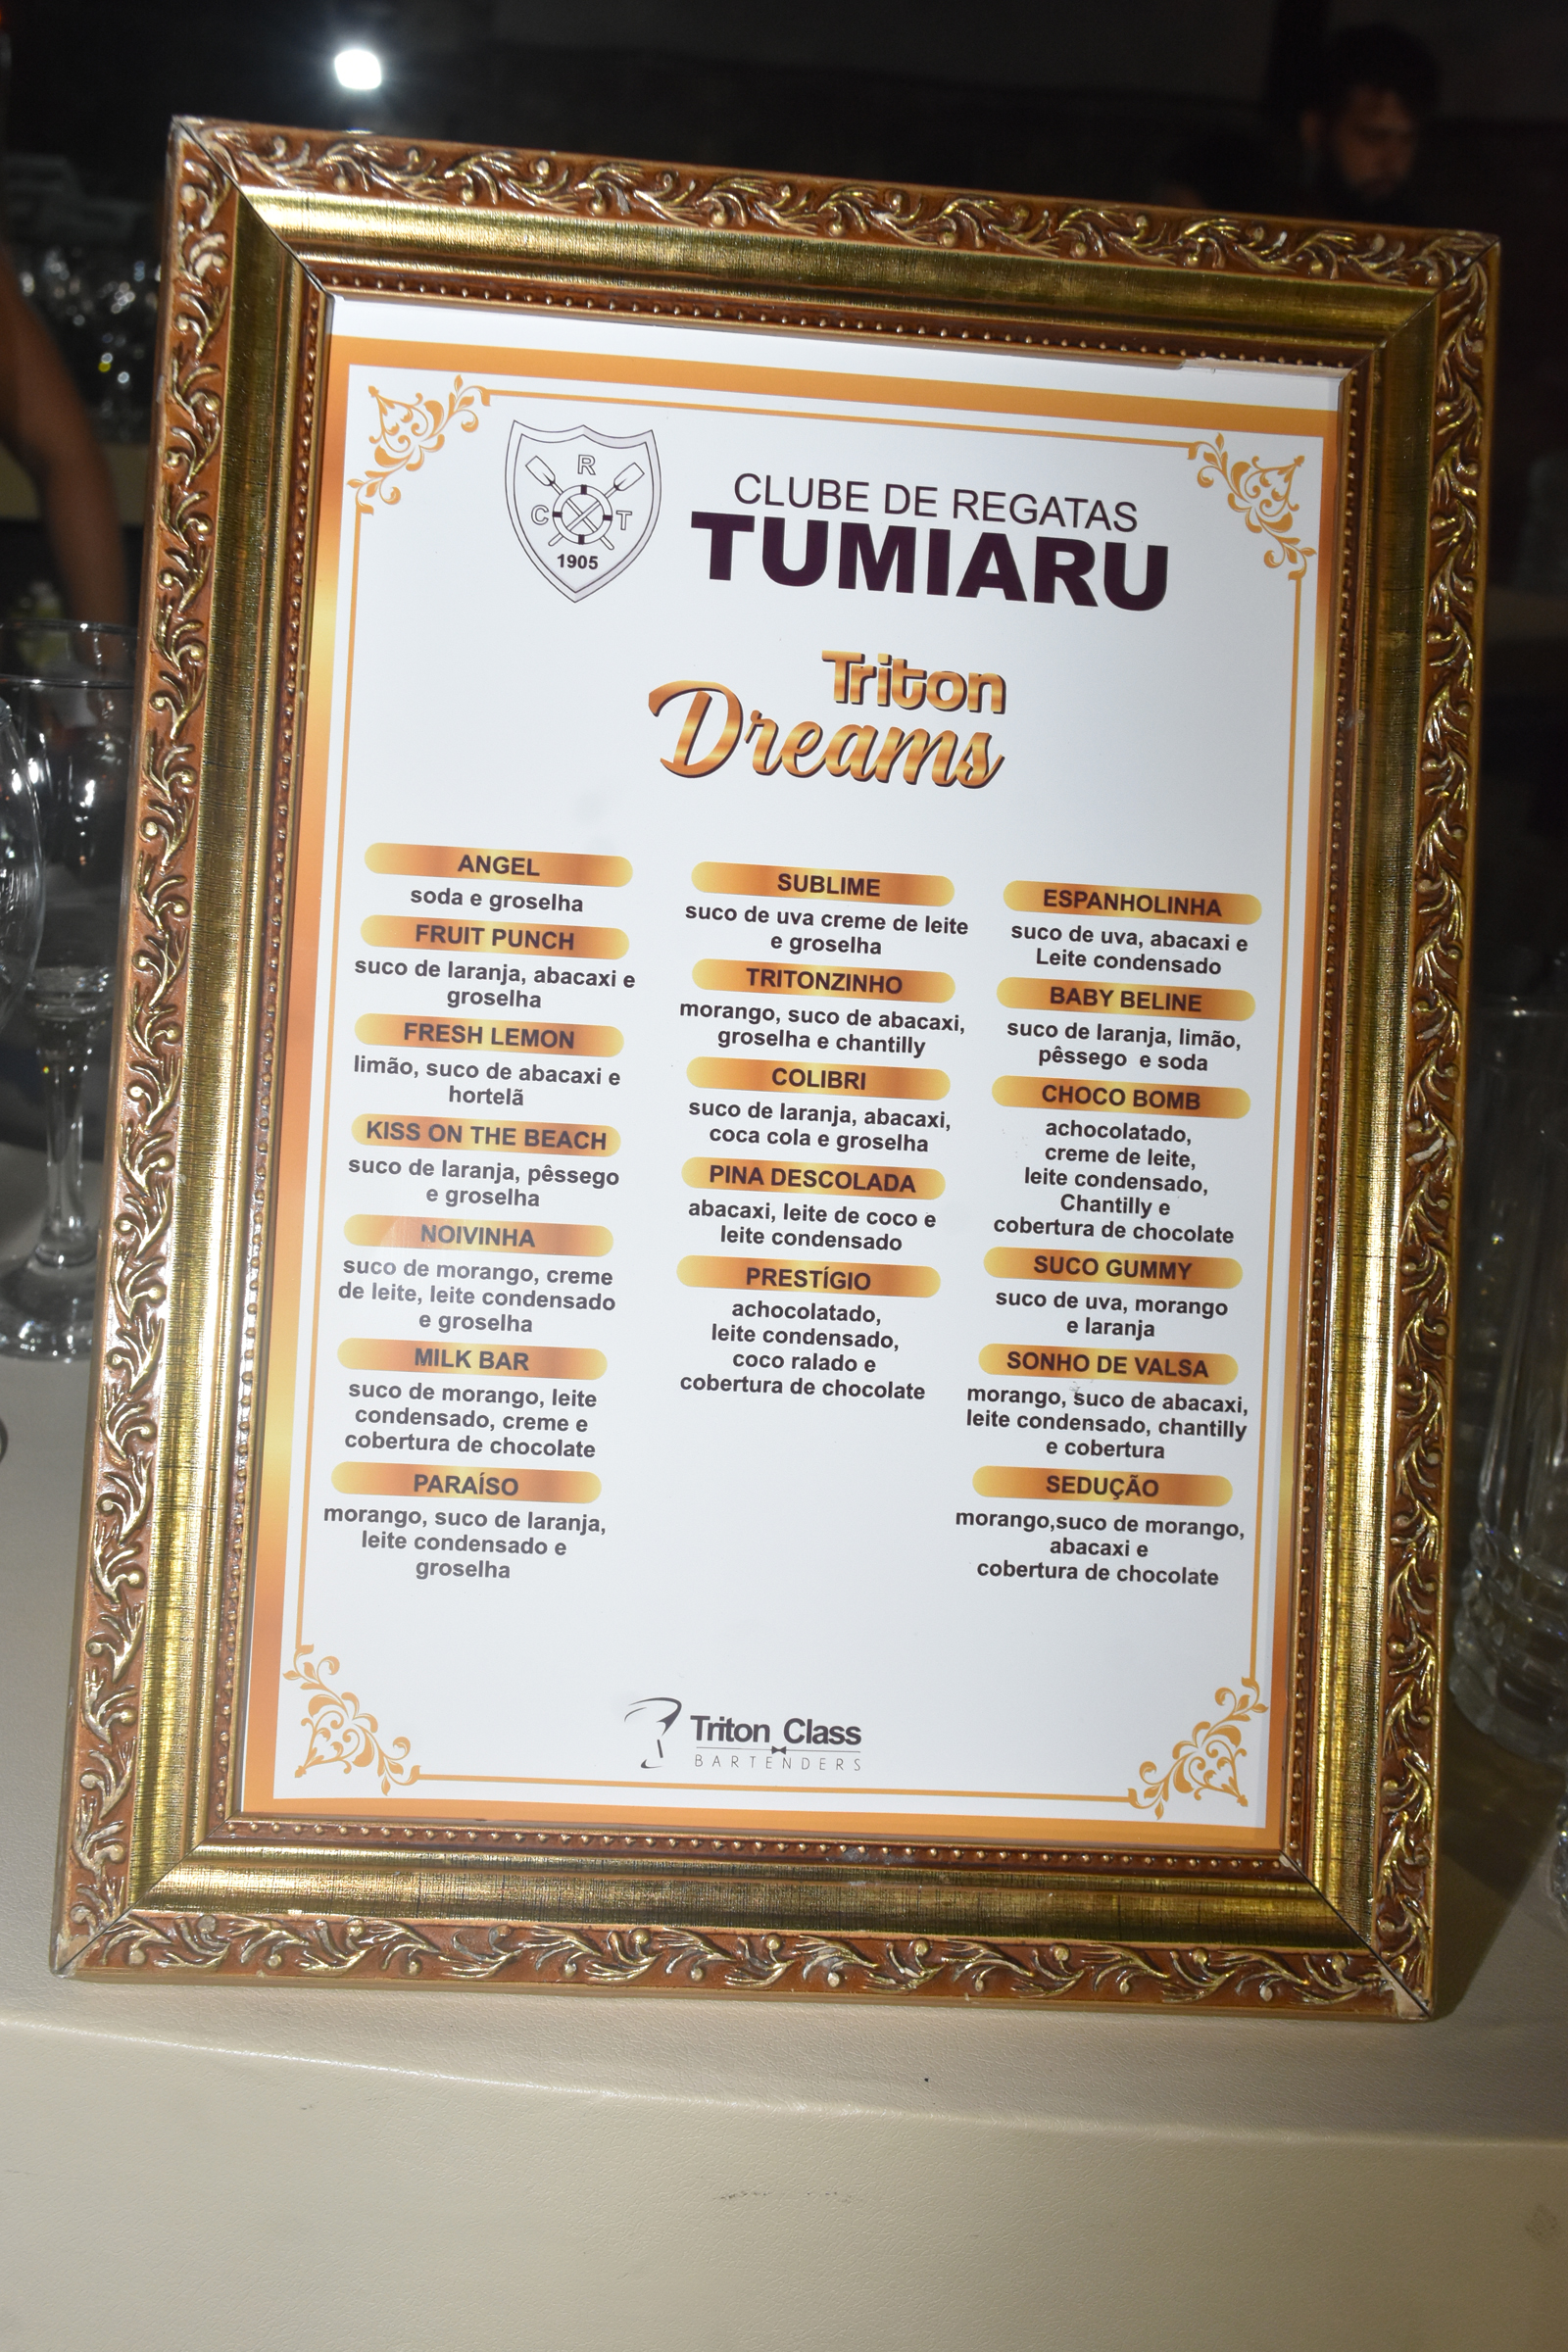 R
C T
1905
CLUBE DE REGATAS
TUMIARU
Triton
Dreams
ANGEL
soda e groselha
FRUIT PUNCH
suco de laranja, abacaxi e
groselha
FRESH LEMON
limão, suco de abacaxi e
hortelã
KISS ON THE BEACH
suco de laranja, pêssego
e groselha
NOIVINHA
suco de morango, creme
de leite, leite condensado
e groselha
MILK BAR
suco de morango, leite
condensado, creme e
cobertura de chocolate
PARAÍSO
morango, suco de laranja,
leite condensado e
groselha
SUBLIME
suco de uva creme de leite
e groselha
TRITONZINHO
morango, suco de abacaxi,
groselha e chantilly
COLIBRI
suco de laranja, abacaxi,
coca cola e groselha
PINA DESCOLADA
abacaxi, leite de coco e
leite condensado
PRESTÍGIO
achocolatado,
leite condensado,
coco ralado e
cobertura de chocolate
ESPANHOLINHA
suco de uva, abacaxi e
Leite condensado
BABY BELINE
suco de laranja, limão,
pêssego e soda
CHOCO BOMB
achocolatado,
creme de leite,
leite condensado,
Chantilly e
cobertura de chocolate
SUCO GUMMY
suco de uva, morango
e laranja
SONHO DE VALSA
morango, suco de abacaxi,
leite condensado, chantilly
e cobertura
SEDUÇÃO
morango,suco de morango,
abacaxi e
cobertura de chocolate
Triton Class
BARTENDERS